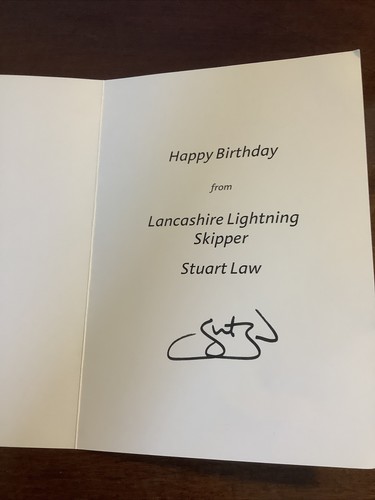 Happy Birthday
from
Lancashire Lightning
Skipper
Stuart Law